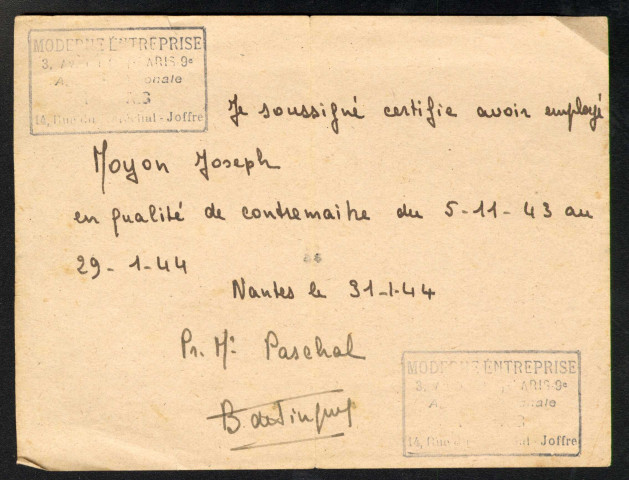 MODERNE ENTREPRISE
3, PARIS-9e
A
14, Rue du - Joffre
Je soussigné certifie avoir employé
Moyon Joseph
en qualité de contremaitre du 5-11-43 au
29-1-44
Nantes le 31-1-44
Pr. Mr. Paschal
B de
MODERNE ENTREPRISE
3, PARIS-9e
A
14, Rue - Joffre